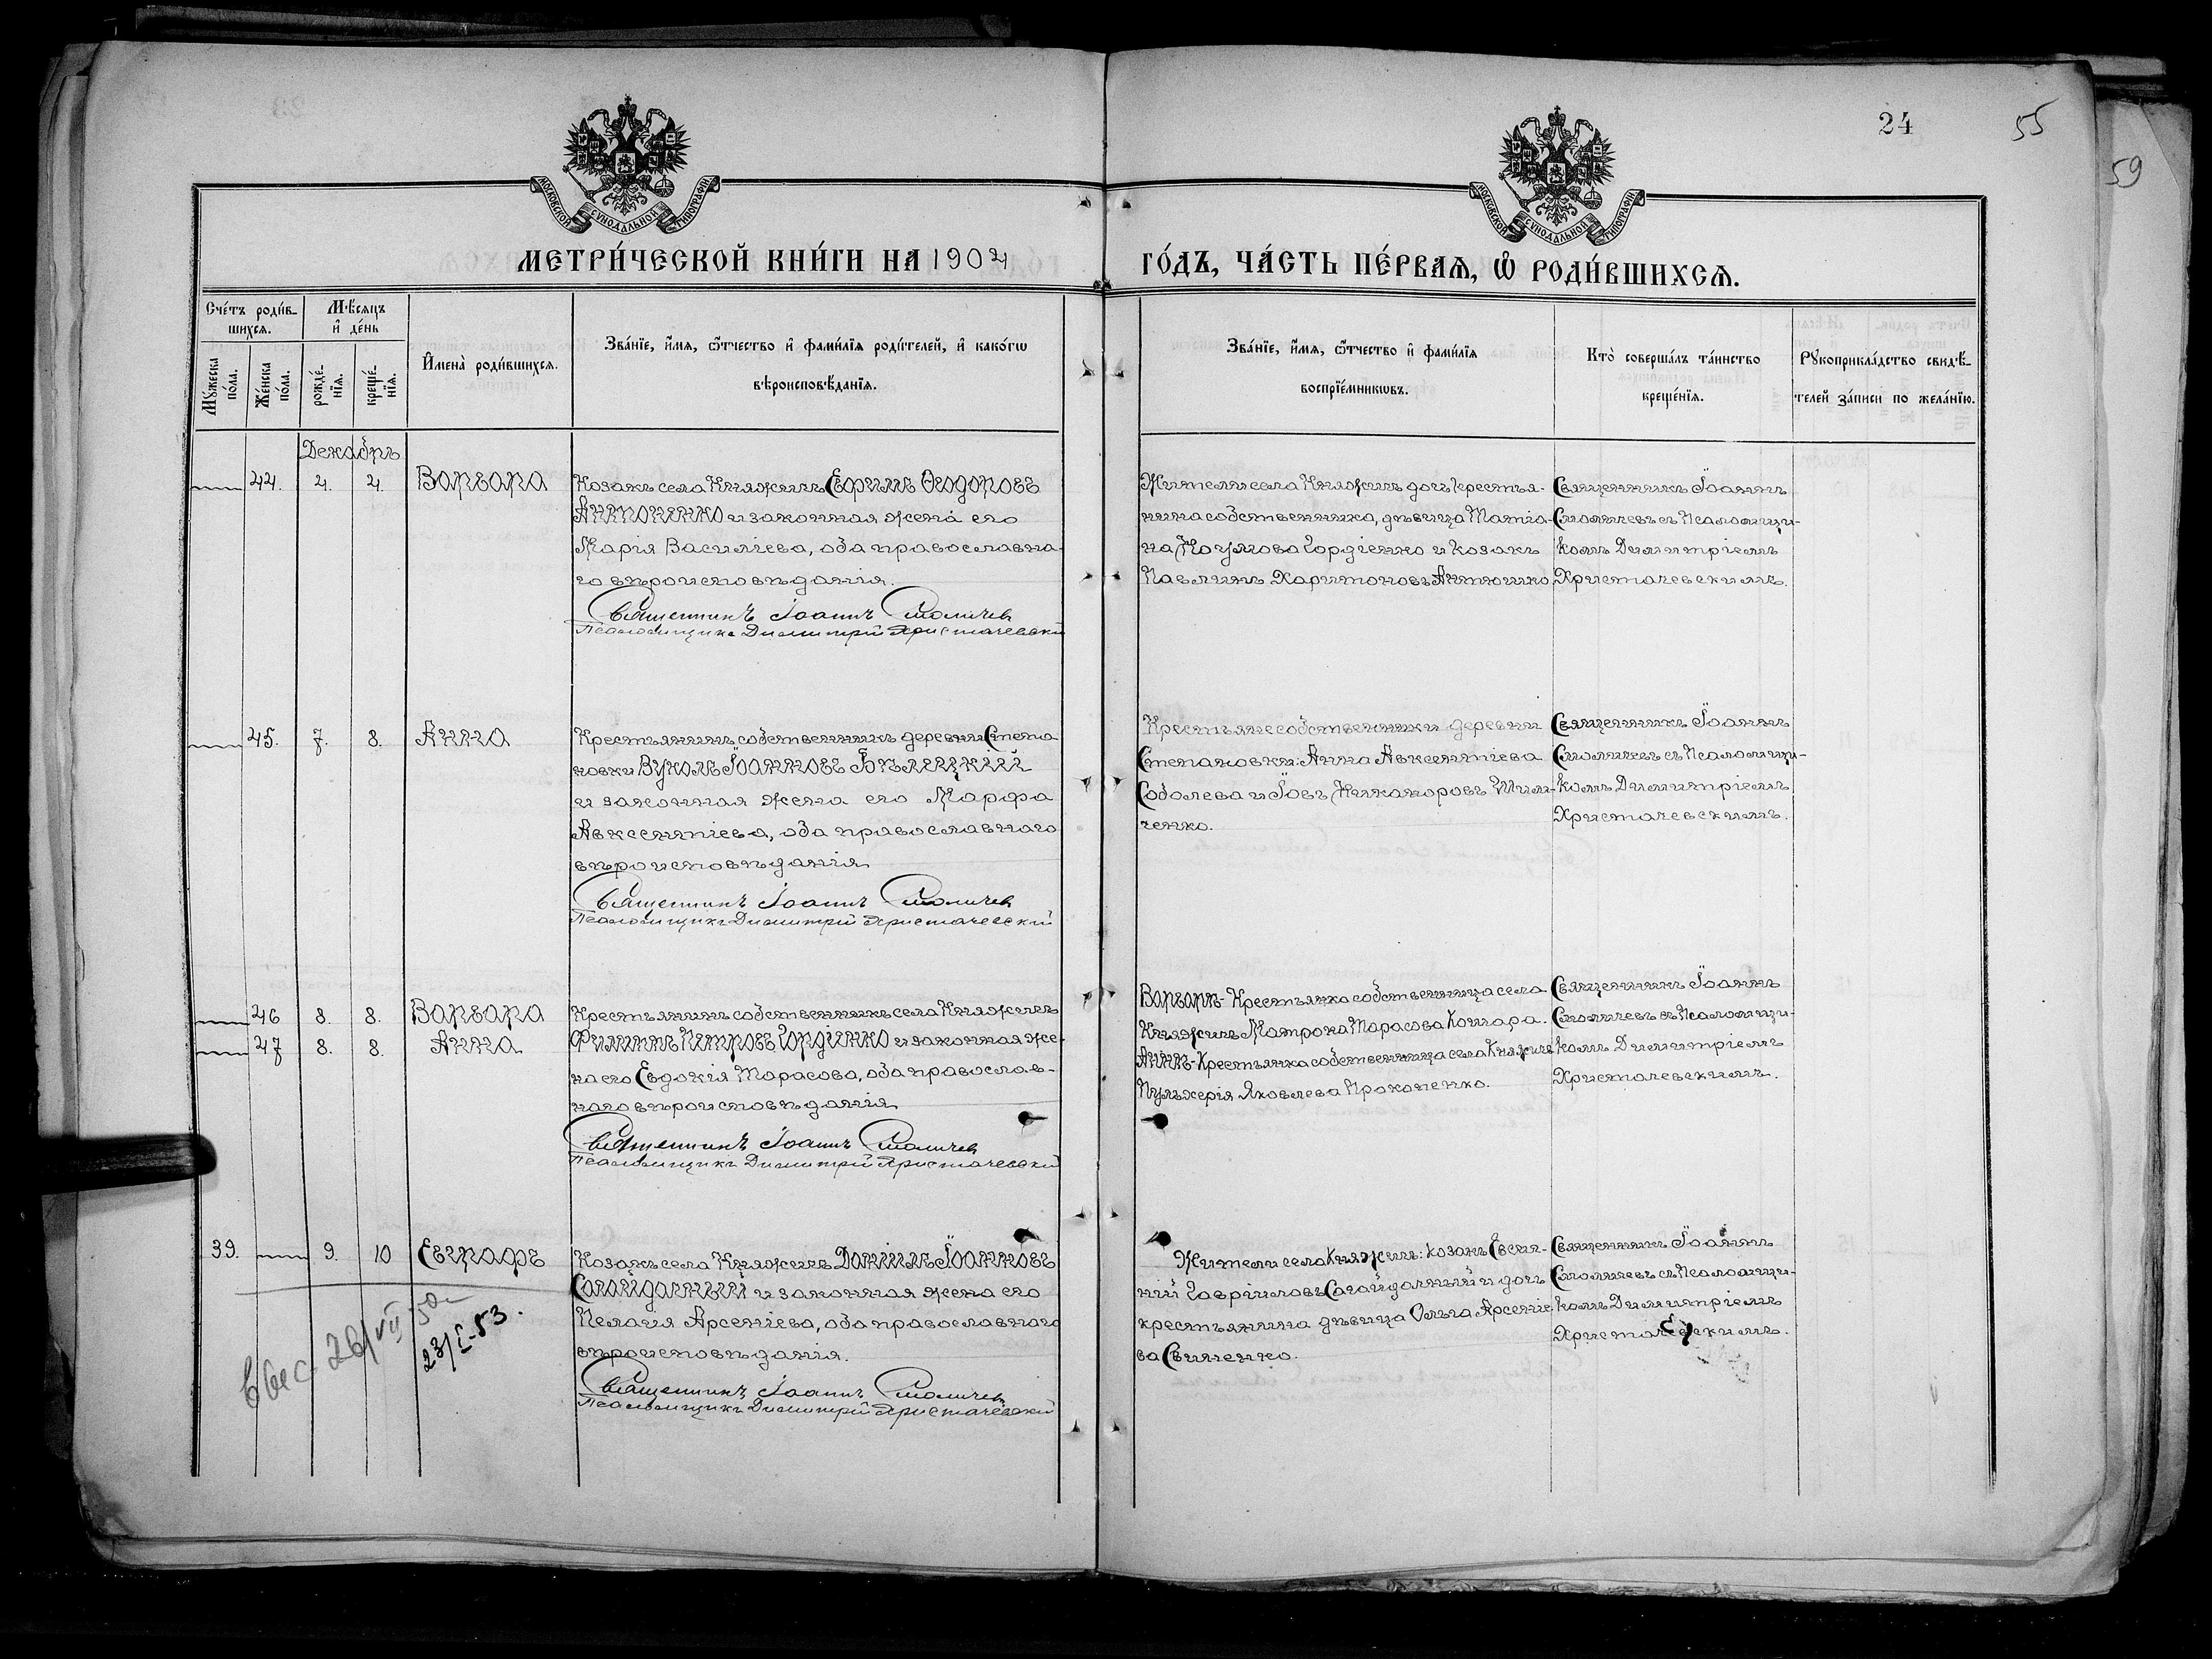 24
55
59
МОСКОВСКОЙ СѴНОДАЛЬНОЙ ТИПОГРАФІИ
МОСКОВСКОЙ СѴНОДАЛЬНОЙ ТИПОГРАФІИ
МЕТРИ́ЧЕСКОЙ КНИ́ГИ НА 1904
ГО́ДЪ, ЧА́СТЬ ПЕ́РВАѦ, Ѡ҆ РОДИ́ВШИХСѦ.
Сче́тъ роди́в-
шихсѧ.
Мѣ́сѧцъ
и҆ де́нь
Мꙋ́жеска
по́ла.
Же́нска
по́ла.
рожде́-
нїѧ.
креще́-
нїѧ.
И҆мена̀ роди́вшихсѧ.
Зва́нїе, и҆́мѧ, ѻ҆́тчество и҆ фами́лїѧ роди́телей, и҆ како́гѡ
вѣроисповѣ́данїѧ.
Зва́нїе, и҆́мѧ, ѻ҆́тчество и҆ фами́лїѧ
воспрїе́мникѡвъ.
Кто̀ соверша́лъ та́инство
креще́нїѧ.
Рꙋкоприкла́дство свидѣ́-
телей за́писи по жела́нїю.
Декабрь
44. 4. 4. Варвара
Козакъ села Княжичъ Ефимъ Ѳеодоровъ
Антоненко и законная жена его
Марія Василіева, оба православна-
го вѣроисповѣданія.
Священникъ Іоаннъ Смоличев
Псаломщикъ Димитрій Христачевскій
Жители села Княжичъ дочь крестья-
нина собственника, дѣвица Татіа-
на Наумова Гордіенко и козакъ
Павлинъ Харитоновъ Антюшко
Священникъ Іоаннъ
Смоличевъ съ Псаломщи-
комъ Димитріемъ
Христачевскимъ.
45. 7. 8. Анна
Крестьянинъ собственникъ деревни Степа-
новки Вуколъ Іоанновъ Бѣлецкій
и законная жена его Марфа
Авксентіева, оба православнаго
вѣроисповѣданія
Священникъ Іоаннъ Смоличев
Псаломщикъ Димитрій Христачевскій
Крестьяне собственники деревни
Степановки: Анна Авксентіева
Соболева и Іовъ Никаноровъ Шим-
ченко.
Священникъ Іоаннъ
Смоличевъ съ Псаломщи-
комъ Димитріемъ
Христачевскимъ.
46 8. 8. Варвара
47 8. 8. Анна
Крестьянинъ собственникъ села Княжичъ
Филиппъ Петровъ Гордіенко и законная же-
на его Евдокія Тарасова, оба православ-
наго вѣроисповѣданія
Священникъ Іоаннъ Смоличев
Псаломщикъ Димитрій Христачевскій
Варварѣ - Крестьянка собственница села
Княжичъ Матрона Тарасова Кошара.
Аннѣ - Крестьянка собственница села Княжичъ
Пульхерія Яковлева Прокопенко.
Священникъ Іоаннъ
Смоличевъ съ Псаломщи-
комъ Димитріемъ
Христачевскимъ.
39. 9. 10 Евграфъ
Козакъ села Княжичъ Даніилъ Іоанновъ
Сагайдачный и законная жена его
Пелагія Арсеніева, оба православнаго
вѣроисповѣданія.
Священникъ Іоаннъ Смоличев
Псаломщикъ Димитрій Христачевскій
Жители села Княжичъ: козакъ Евге-
ній Гавріиловъ Сагайдачный и дочь
крестьянина дѣвица Ольга Арсеніе-
ва Свиченко.
Священникъ Іоаннъ
Смоличевъ съ Псаломщи-
комъ Димитріемъ
Христачевскимъ.
23/I-53.